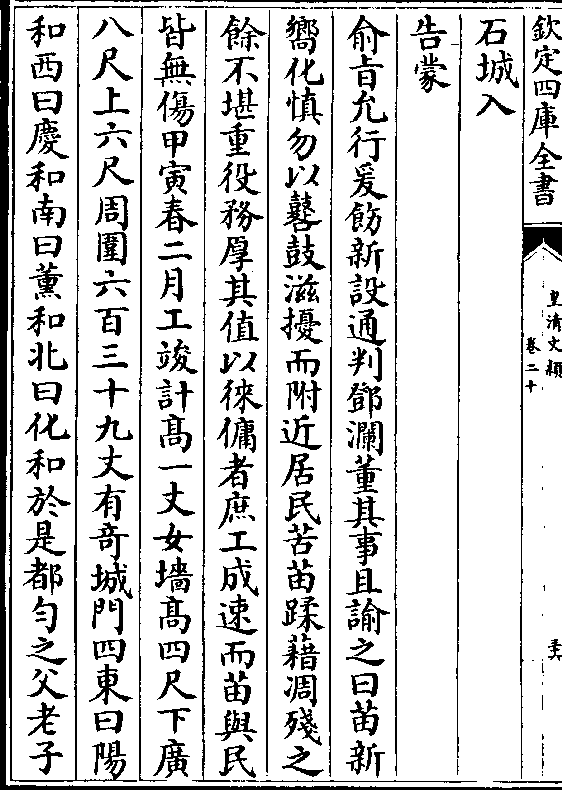 欽定四庫全書
皇清文穎
卷二十
石城入
告蒙
俞旨允行爰飭新設通判鄧瀾董其事且諭之曰苗新
嚮化慎勿以鼛鼓滋擾而附近居民苦苗蹂藉凋殘之
餘不堪重役務厚其值以徠傭者庶工成速而苗與民
皆無傷甲寅春二月工竣計髙一丈女墻髙四尺下廣
八尺上六尺周圍六百三十九丈有奇城門四東曰陽
和西曰慶和南曰薰和北曰化和於是都勻之父老子